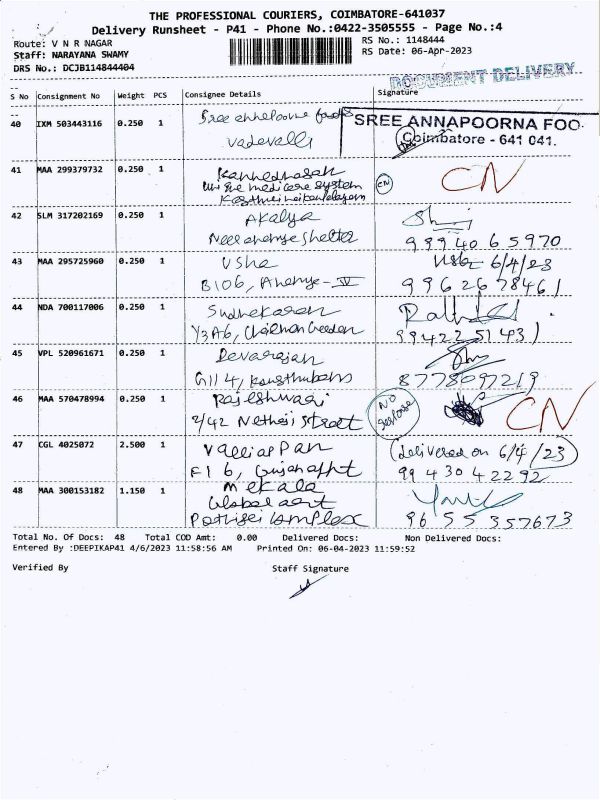 THE PROFESSIONAL COURIERS, COIMBATORE-641037
Delivery Runsheet - P41 - Phone No.:0422-3505555 - Page No.:4
Route: V N R NAGAR
RS No.: 1148444
Staff: NARAYANA SWAMY
RS Date: 06-Apr-2023
DRS No.: DCJB114844404
DOCUMENT DELIVERY
S No Consignment No Weight PCS Consignee Details Signature
40 IXM 503443116 0.250 1 Sree annapoorna foods
vadavalli
SREE ANNAPOORNA FOO
Coimbatore - 641 041.
41 MAA 299379732 0.250 1 Kannadhasan
Unique medicare system
CN CN
42 SLM 317202169 0.250 1 Akalya
Neer ananya shelter
99940 65970
43 MAA 295725960 0.250 1 Usha
B106, Ananya - IV
Usha 6/4/23
9962678461
44 NDA 700117006 0.250 1 Sudhakaran
Y3A6, Garden
99422 51431
45 VPL 520961671 0.250 1 Devarajan
G114, Kousthubam
8778097219
46 MAA 570478994 0.250 1 Rajeshwari
2/42 Nethaji Street
NO response CN
47 CGL 4025072 2.500 1 Valliappan
F16,
Delivered on 6/4/23
99 430 42292
48 MAA 300153182 1.150 1 Mekala
Global
Complex
96 55 357673
Total No. Of Docs: 48 Total COD Amt: 0.00 Delivered Docs: Non Delivered Docs:
Entered By :DEEPIKAP41 4/6/2023 11:58:56 AM Printed On: 06-04-2023 11:59:52
Verified By Staff Signature